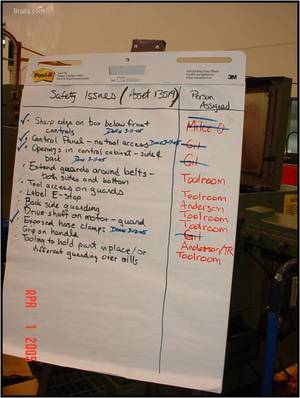 Braita.com
Post-it
3M
Safety Issues (Asset 13519)
Person
Assigned
✓ Sharp edge on box below front
controls Done 3-11-05
Mike O
✓ Control Panel - no tool access
Gil
✓ Openings in control cabinet - side &
back Done 3-11-05
Gil
Extend guards around belts -
both sides and bottom
Toolroom
Tool access on guards
Toolroom
Label E-stop
Anderson
Back side guarding
Toolroom
Drive shaft on motor - guard
Toolroom
Exposed hose clamps Done
Gil
Grip on handle
Anderson/TR
Tooling to hold part in place / or
different guarding over mills
Toolroom
APR 1 2005